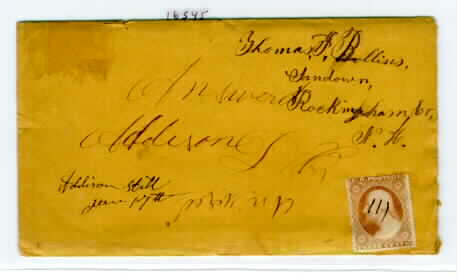 16545
Thomas J. Rollins,
Sandown,
Rockingham Co,
N. H.
Answered
Addison
Addison Hill
June 17th